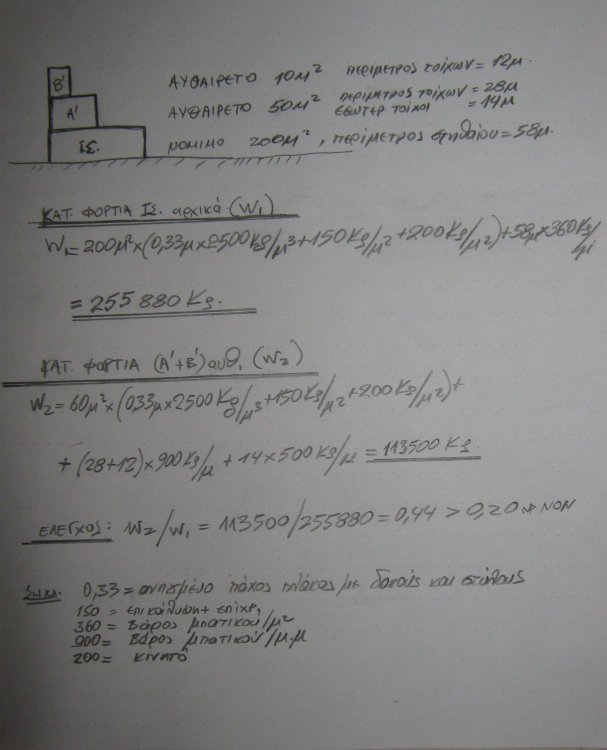 Β' ΑΥΘΑΙΡΕΤΟ 10μ² ΠΕΡΙΜΕΤΡΟΣ ΤΟΙΧΩΝ = 12μ.
Α' ΑΥΘΑΙΡΕΤΟ 50μ² ΠΕΡΙΜΕΤΡΟΣ ΤΟΙΧΩΝ = 28μ
ΕΣΩΤΕΡ ΤΟΙΧΟΙ = 14μ
ΙΣ. ΝΟΜΙΜΟ 200Μ², ΠΕΡΙΜΕΤΡΟΣ ΣΤΗΘΑΙΟΥ = 58μ.
ΚΑΤ. ΦΟΡΤΙΑ ΙΣ. αρχικά (W1)
W1=200μ²×(0,33μ×2500Kg/μ³+150Kg/μ²+200Kg/μ²)+58μ×360Kg/μ
= 255880 Kg.
ΚΑΤ. ΦΟΡΤΙΑ (Α'+Β') αυθ. (W2)
W2=60μ²×(0,33μ×2500Kg/μ³+150Kg/μ²+200Kg/μ²)+
+(28+12)×900Kg/μ + 14×500Kg/μ = 113500 Kg.
ΕΛΕΓΧΟΣ: W2/W1 = 113500/255880 = 0,44 > 0,20 → ΝΟΝ
0,33 = ανηγμένο πάχος πλάκας με δοκούς και στύλους
150 = επικάλυψη + επίχρ.
360 = Βάρος μπατικού/μ²
900 = Βάρος μπατικού/μ.μ
200 = κινητό